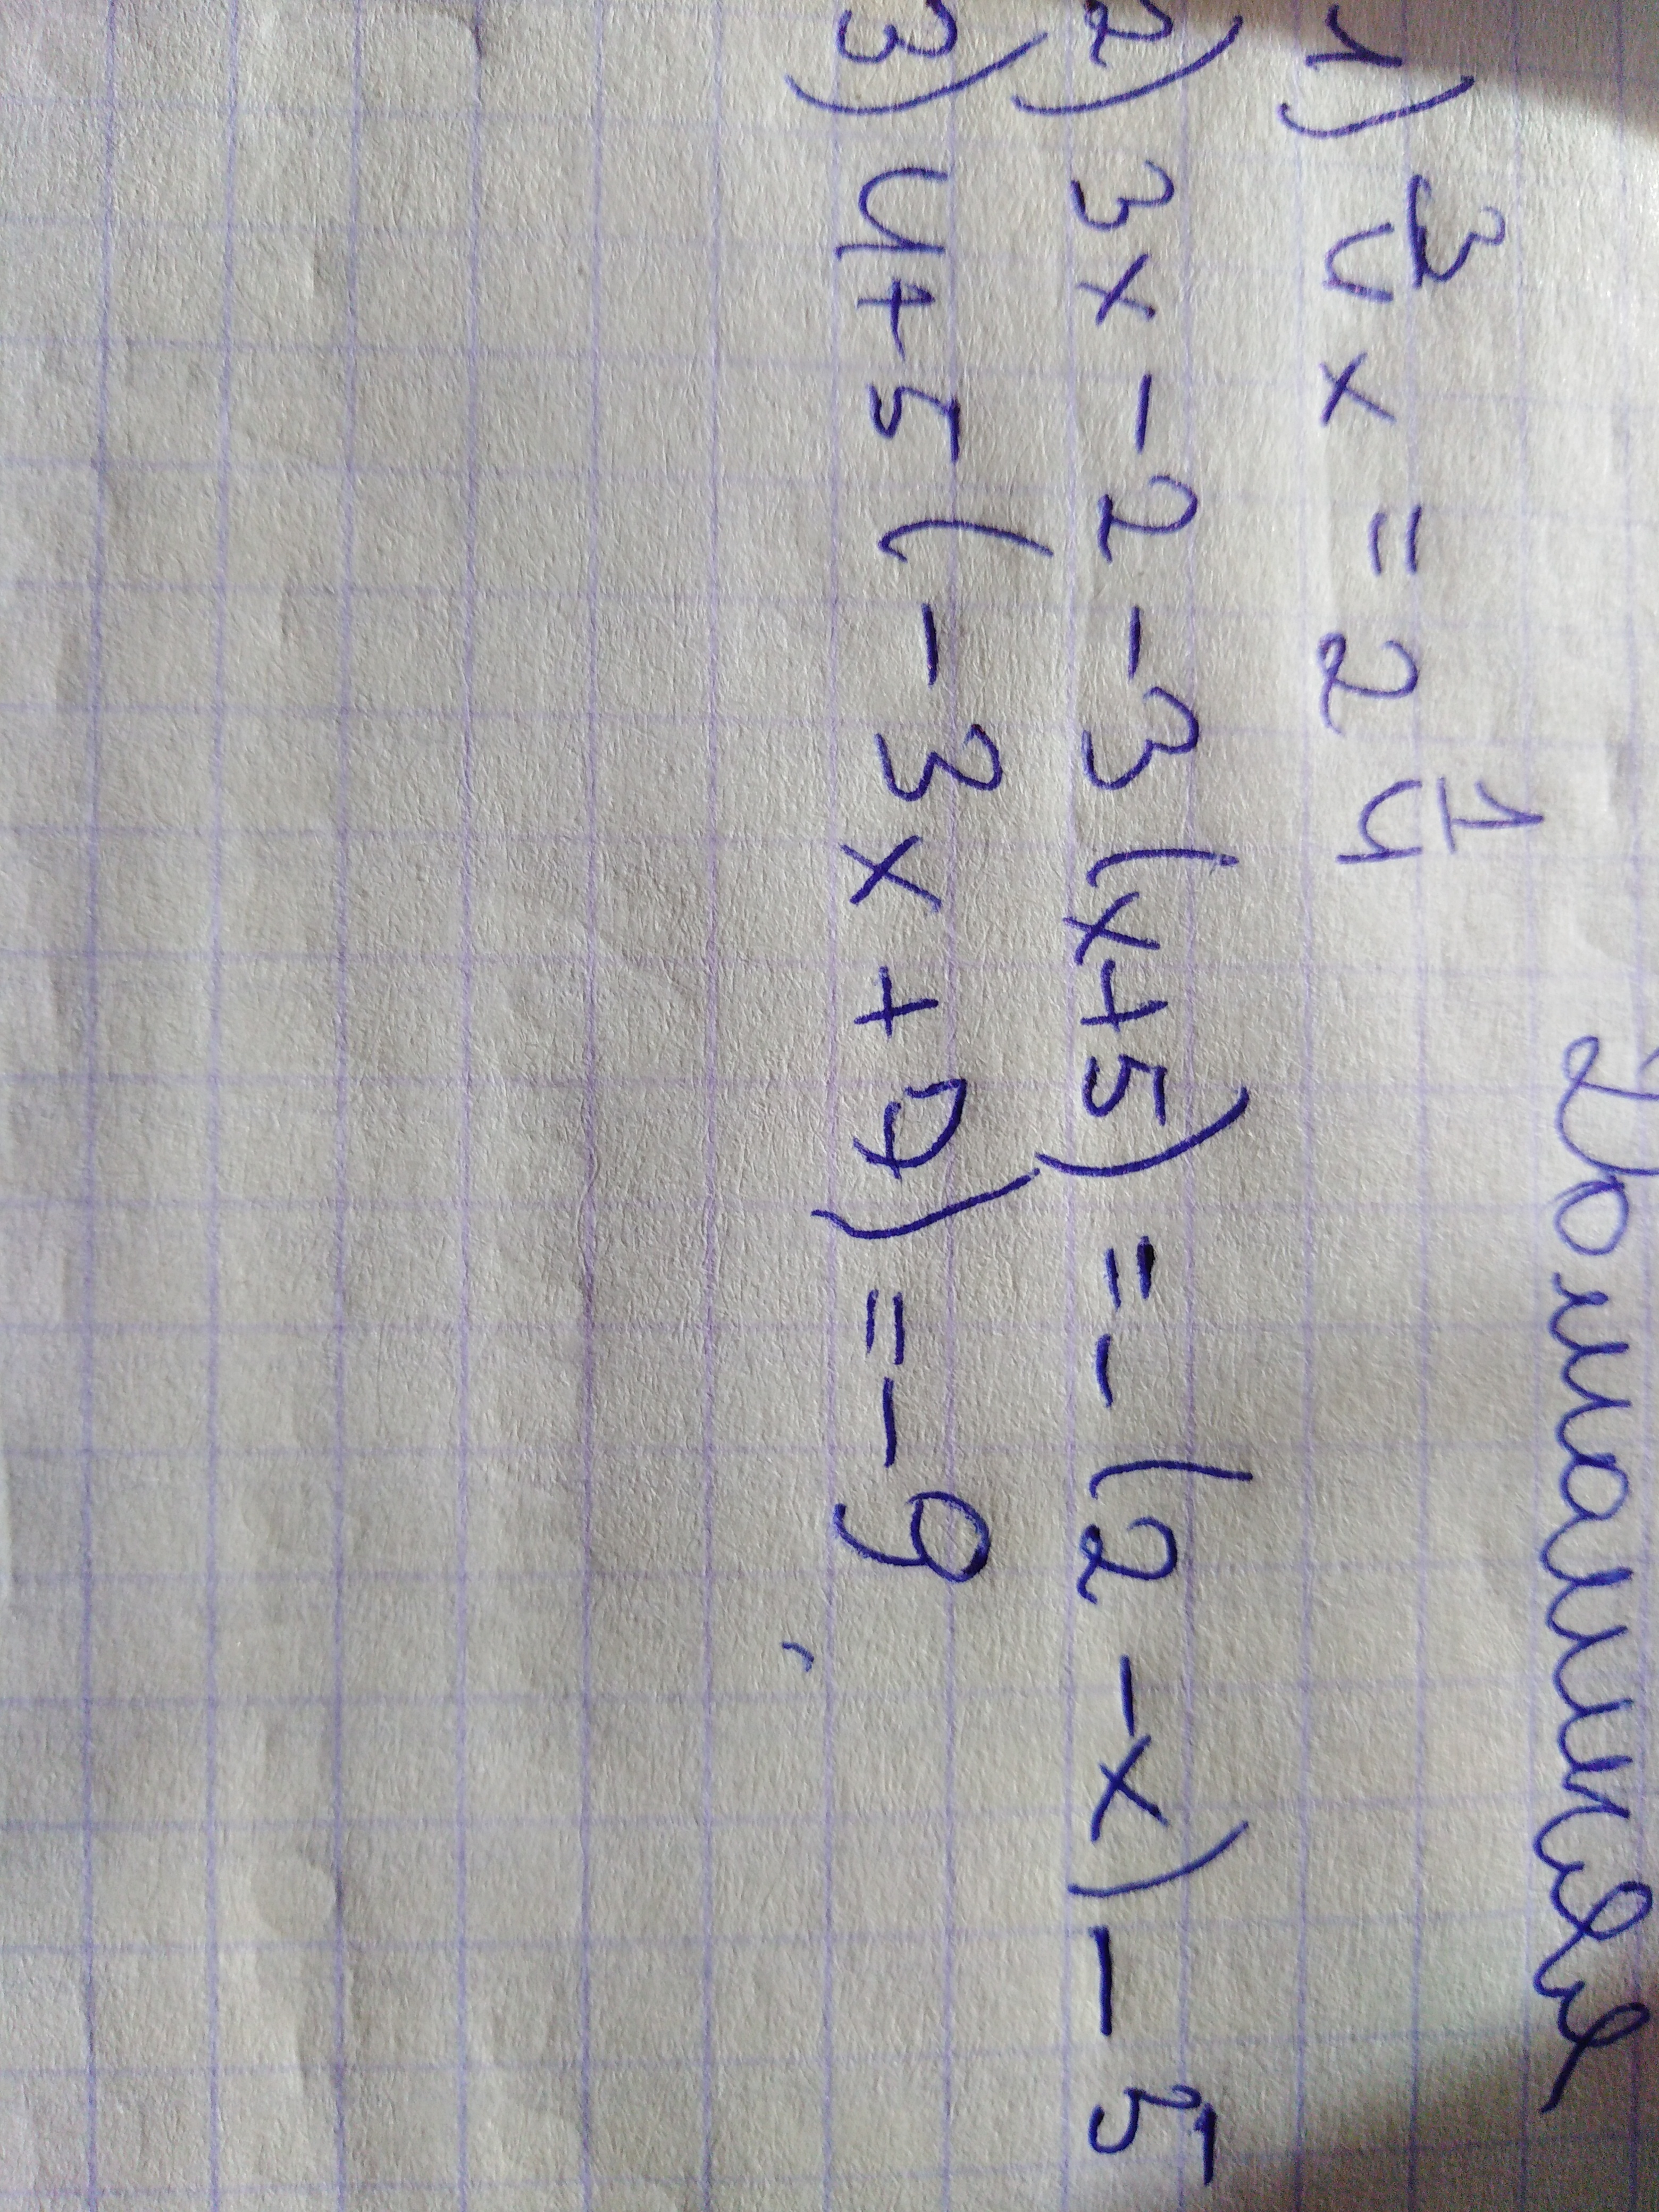 Домашнее
1) 3/4 x = 2 1/4
2) 3x - 2 - 3(x+5) = -(2 - x) - 5
3) 4+5(-3x+7) = -9